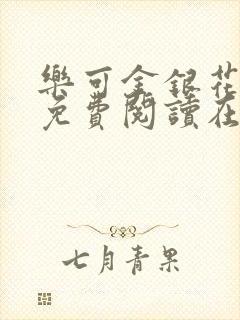 樂可金銀花
免費閱讀在
七月青果